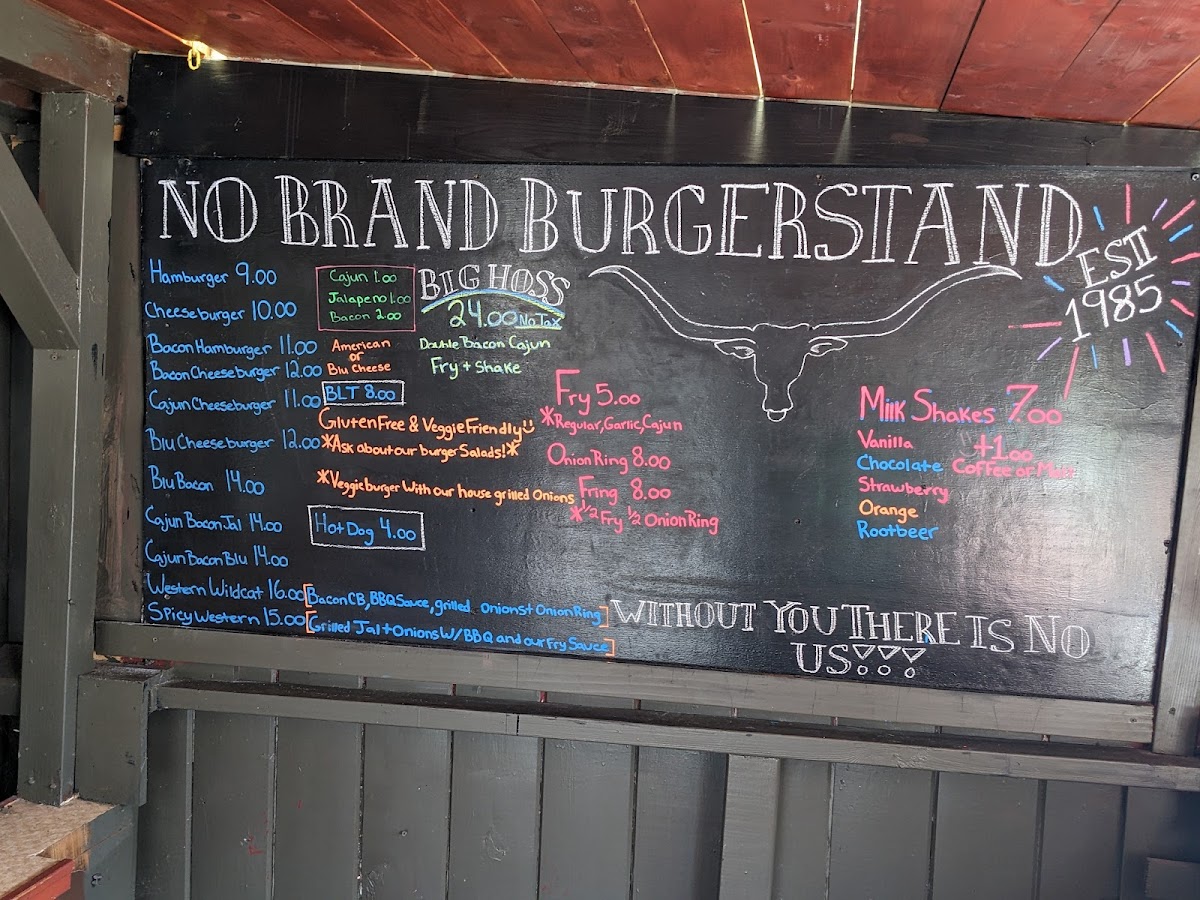 NO BRAND BURGERSTAND
ESTI
1985
Hamburger 9.00
Cheeseburger 10.00
Bacon Hamburger 11.00
Bacon Cheeseburger 12.00
Cajun Cheeseburger 11.00
Blu Cheeseburger 12.00
Blu Bacon 14.00
Cajun Bacon Jal 14.00
Cajun Bacon Blu 14.00
Western Wildcat 16.00 [Bacon CB, BBQ Sauce, grilled onions + Onion Ring]
Spicy Western 15.00 [Grilled Jal + Onions W/ BBQ and our Fry Sauce]
Cajun 1.00
Jalapeno 1.00
Bacon 2.00
American
or
Blu Cheese
BLT 8.00
Gluten Free & Veggie Friendly
*Ask about our burger Salads!*
*Veggie burger With our house grilled Onions
Hot Dog 4.00
BIG HOSS
24.00 No Tax
Double Bacon Cajun
Fry + Shake
Fry 5.00
*Regular, Garlic, Cajun
Onion Ring 8.00
Fring 8.00
*1/2 Fry 1/2 Onion Ring
Milk Shakes 7.00
Vanilla
Chocolate
Strawberry
Orange
Rootbeer
+1.00
Coffee or
WITHOUT YOU THERE IS NO
US!!!